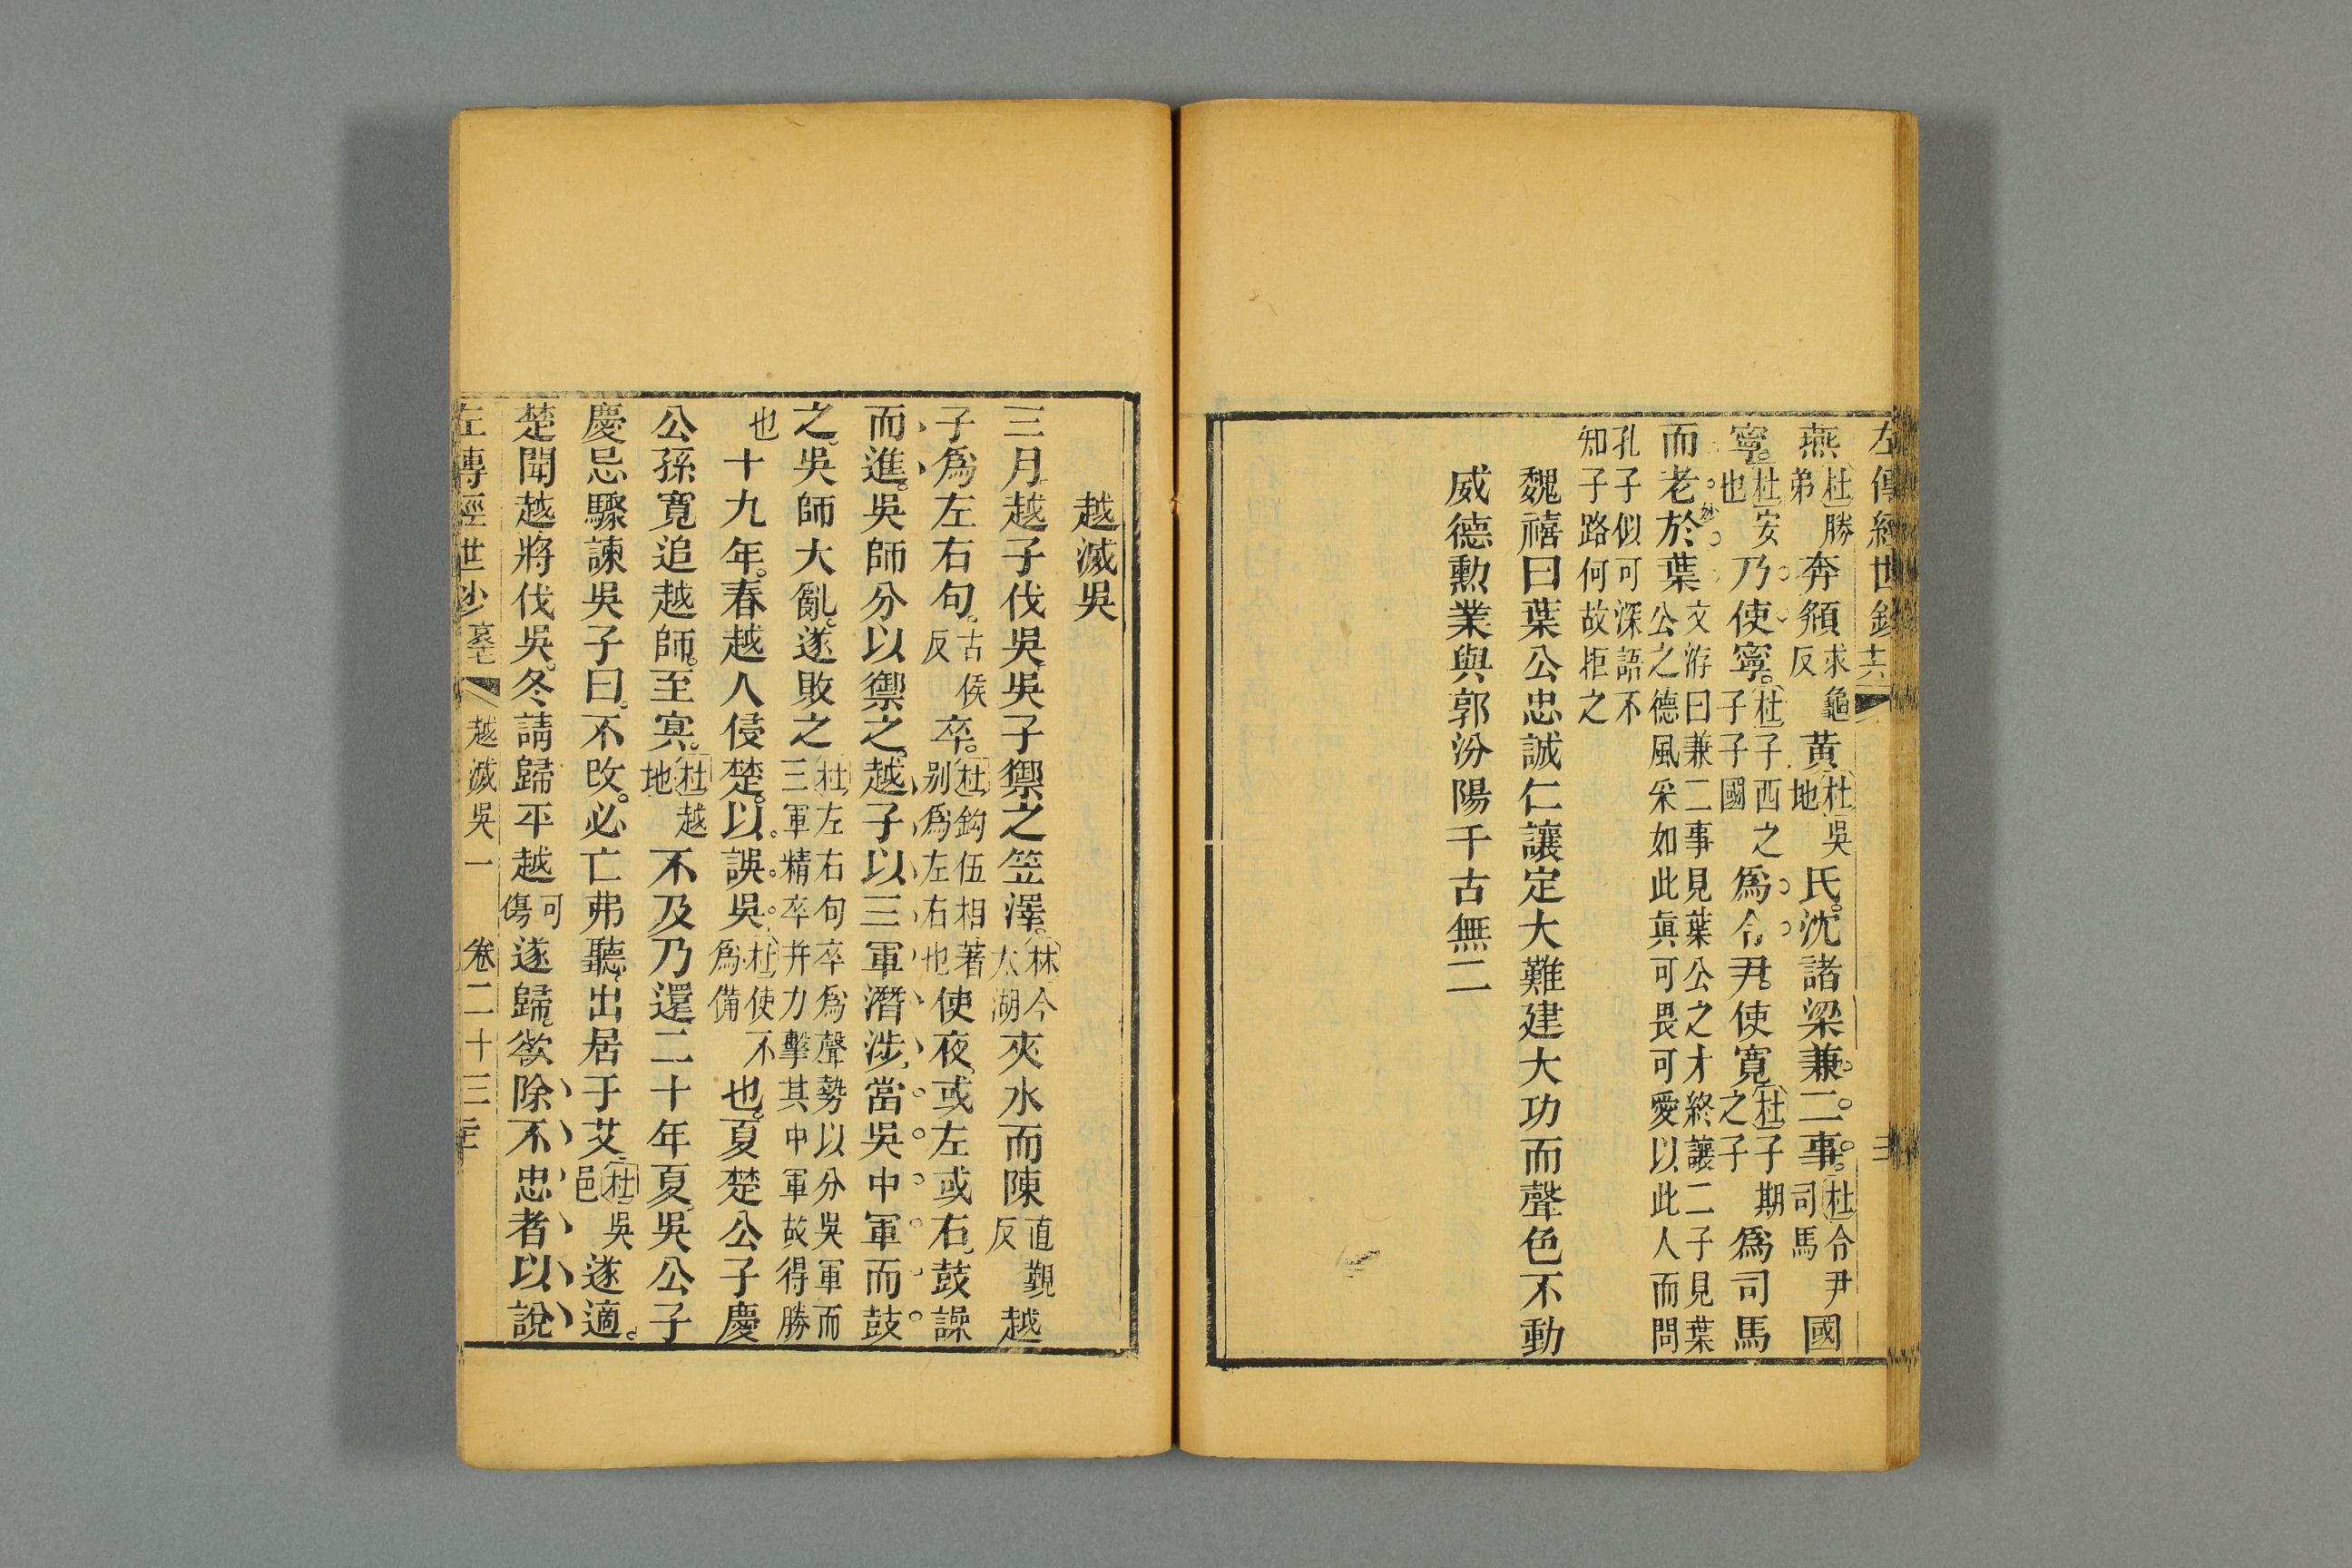 左傳經世鈔 十六 三
燕杜勝弟奔頯求龜反黃杜吳地氏。沈諸梁兼二事。杜令尹司馬國
寧。杜安也乃使寧。杜子西之子子國爲令尹。使寬杜子期之子爲司馬
而老於葉。妙交游曰兼二事見葉公之才終讓二子見葉公之德風采如此眞可畏可愛以此人而問
孔子似可深語不知子路何故拒之
魏禧曰葉公忠誠仁讓定大難建大功而聲色不動
威德勳業與郭汾陽千古無二
越滅吳
三月越子伐吳吳子禦之笠澤。林今太湖夾水而陳直觀反越
子爲左右句。古侯反卒。杜鈎伍相著別爲左右也使夜或左或右鼓譟
而進。吳師分以禦之。越子以三軍潛涉當吳中軍而鼓
之。吳師大亂。遂敗之杜左右句卒爲聲勢以分吳軍而三軍精卒并力擊其中軍故得勝
也十九年。春越人侵楚。以誤吳。杜使不爲備也。夏楚公子慶
公孫寬追越師。至冥。杜越地不及乃還二十年夏吳公子
慶忌驟諫吳子曰。不改。必亡弗聽出居于艾杜吳邑遂適。
楚聞越將伐吳。冬請歸平越可傷遂歸。欲除不忠者以說
左傳經世鈔 哀十七 越滅吳一 卷二十三